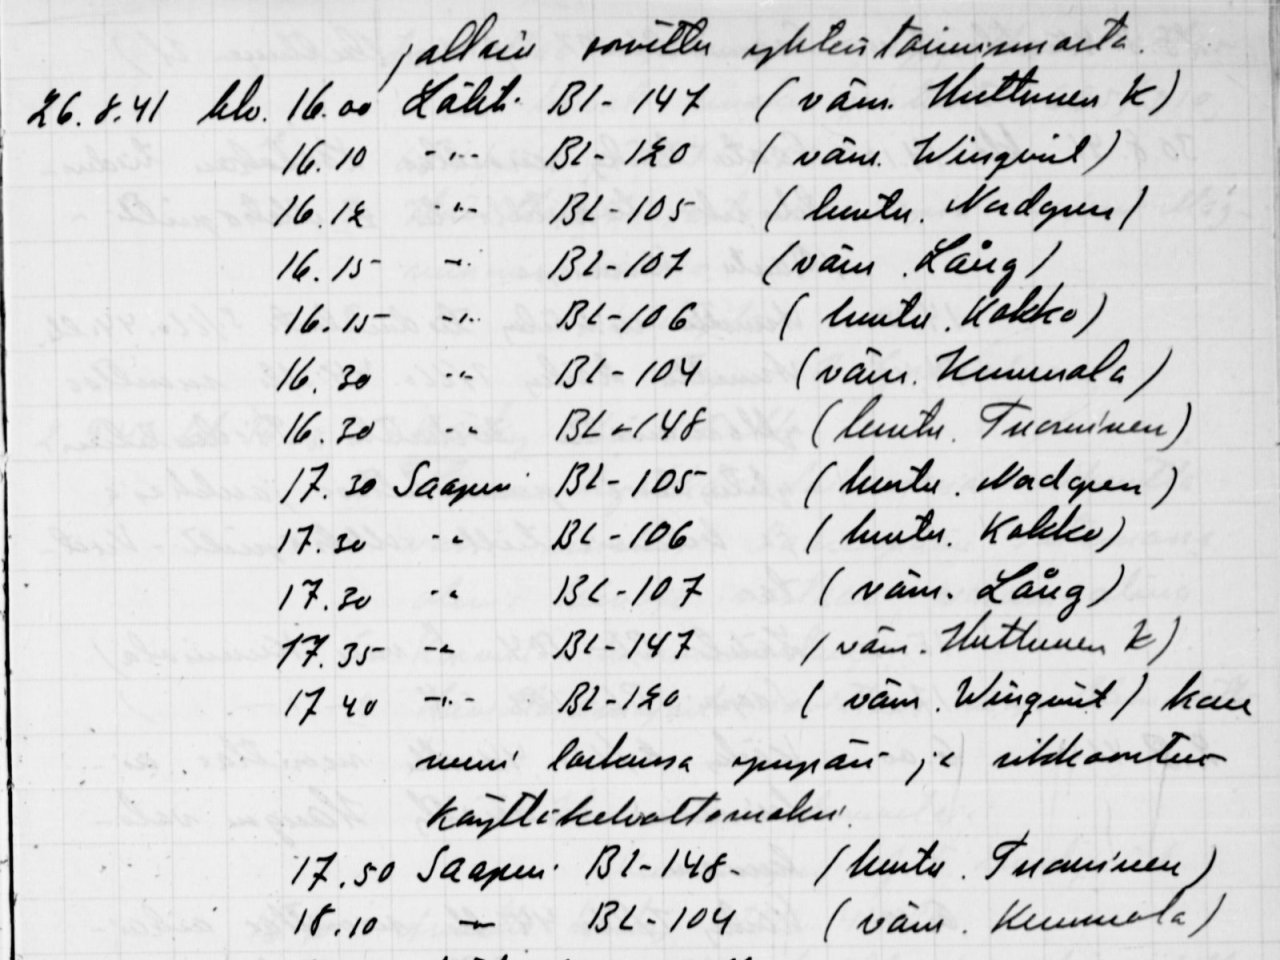 jolloin sovittu yhteistoiminnasta.
26.8.41 klo. 16.00 Läht. BL-147 (vääp. Huttunen K)
16.10 -"- BL-120 (vääp. Winqvist)
16.12 -"- BL-105 (luutn. Nordgren)
16.15 -"- BL-107 (vääp. Lång)
16.15 -"- BL-106 (luutn. Kokko)
16.30 -"- BL-104 (vääp. Kummala)
16.30 -"- BL-148 (luutn. Tuominen)
17.30 Saapui BL-105 (luutn. Nordgren)
17.30 -"- BL-106 (luutn. Kokko)
17.30 -"- BL-107 (vääp. Lång)
17.35 -"- BL-147 (vääp. Huttunen K)
17.40 -"- BL-120 (vääp. Winqvist) kone
meni laskussa ympäri ja rikkoontui
käyttökelvottomaksi.
17.50 Saapui BL-148 (luutn. Tuominen)
18.10 -"- BL-104 (vääp. Kummala)